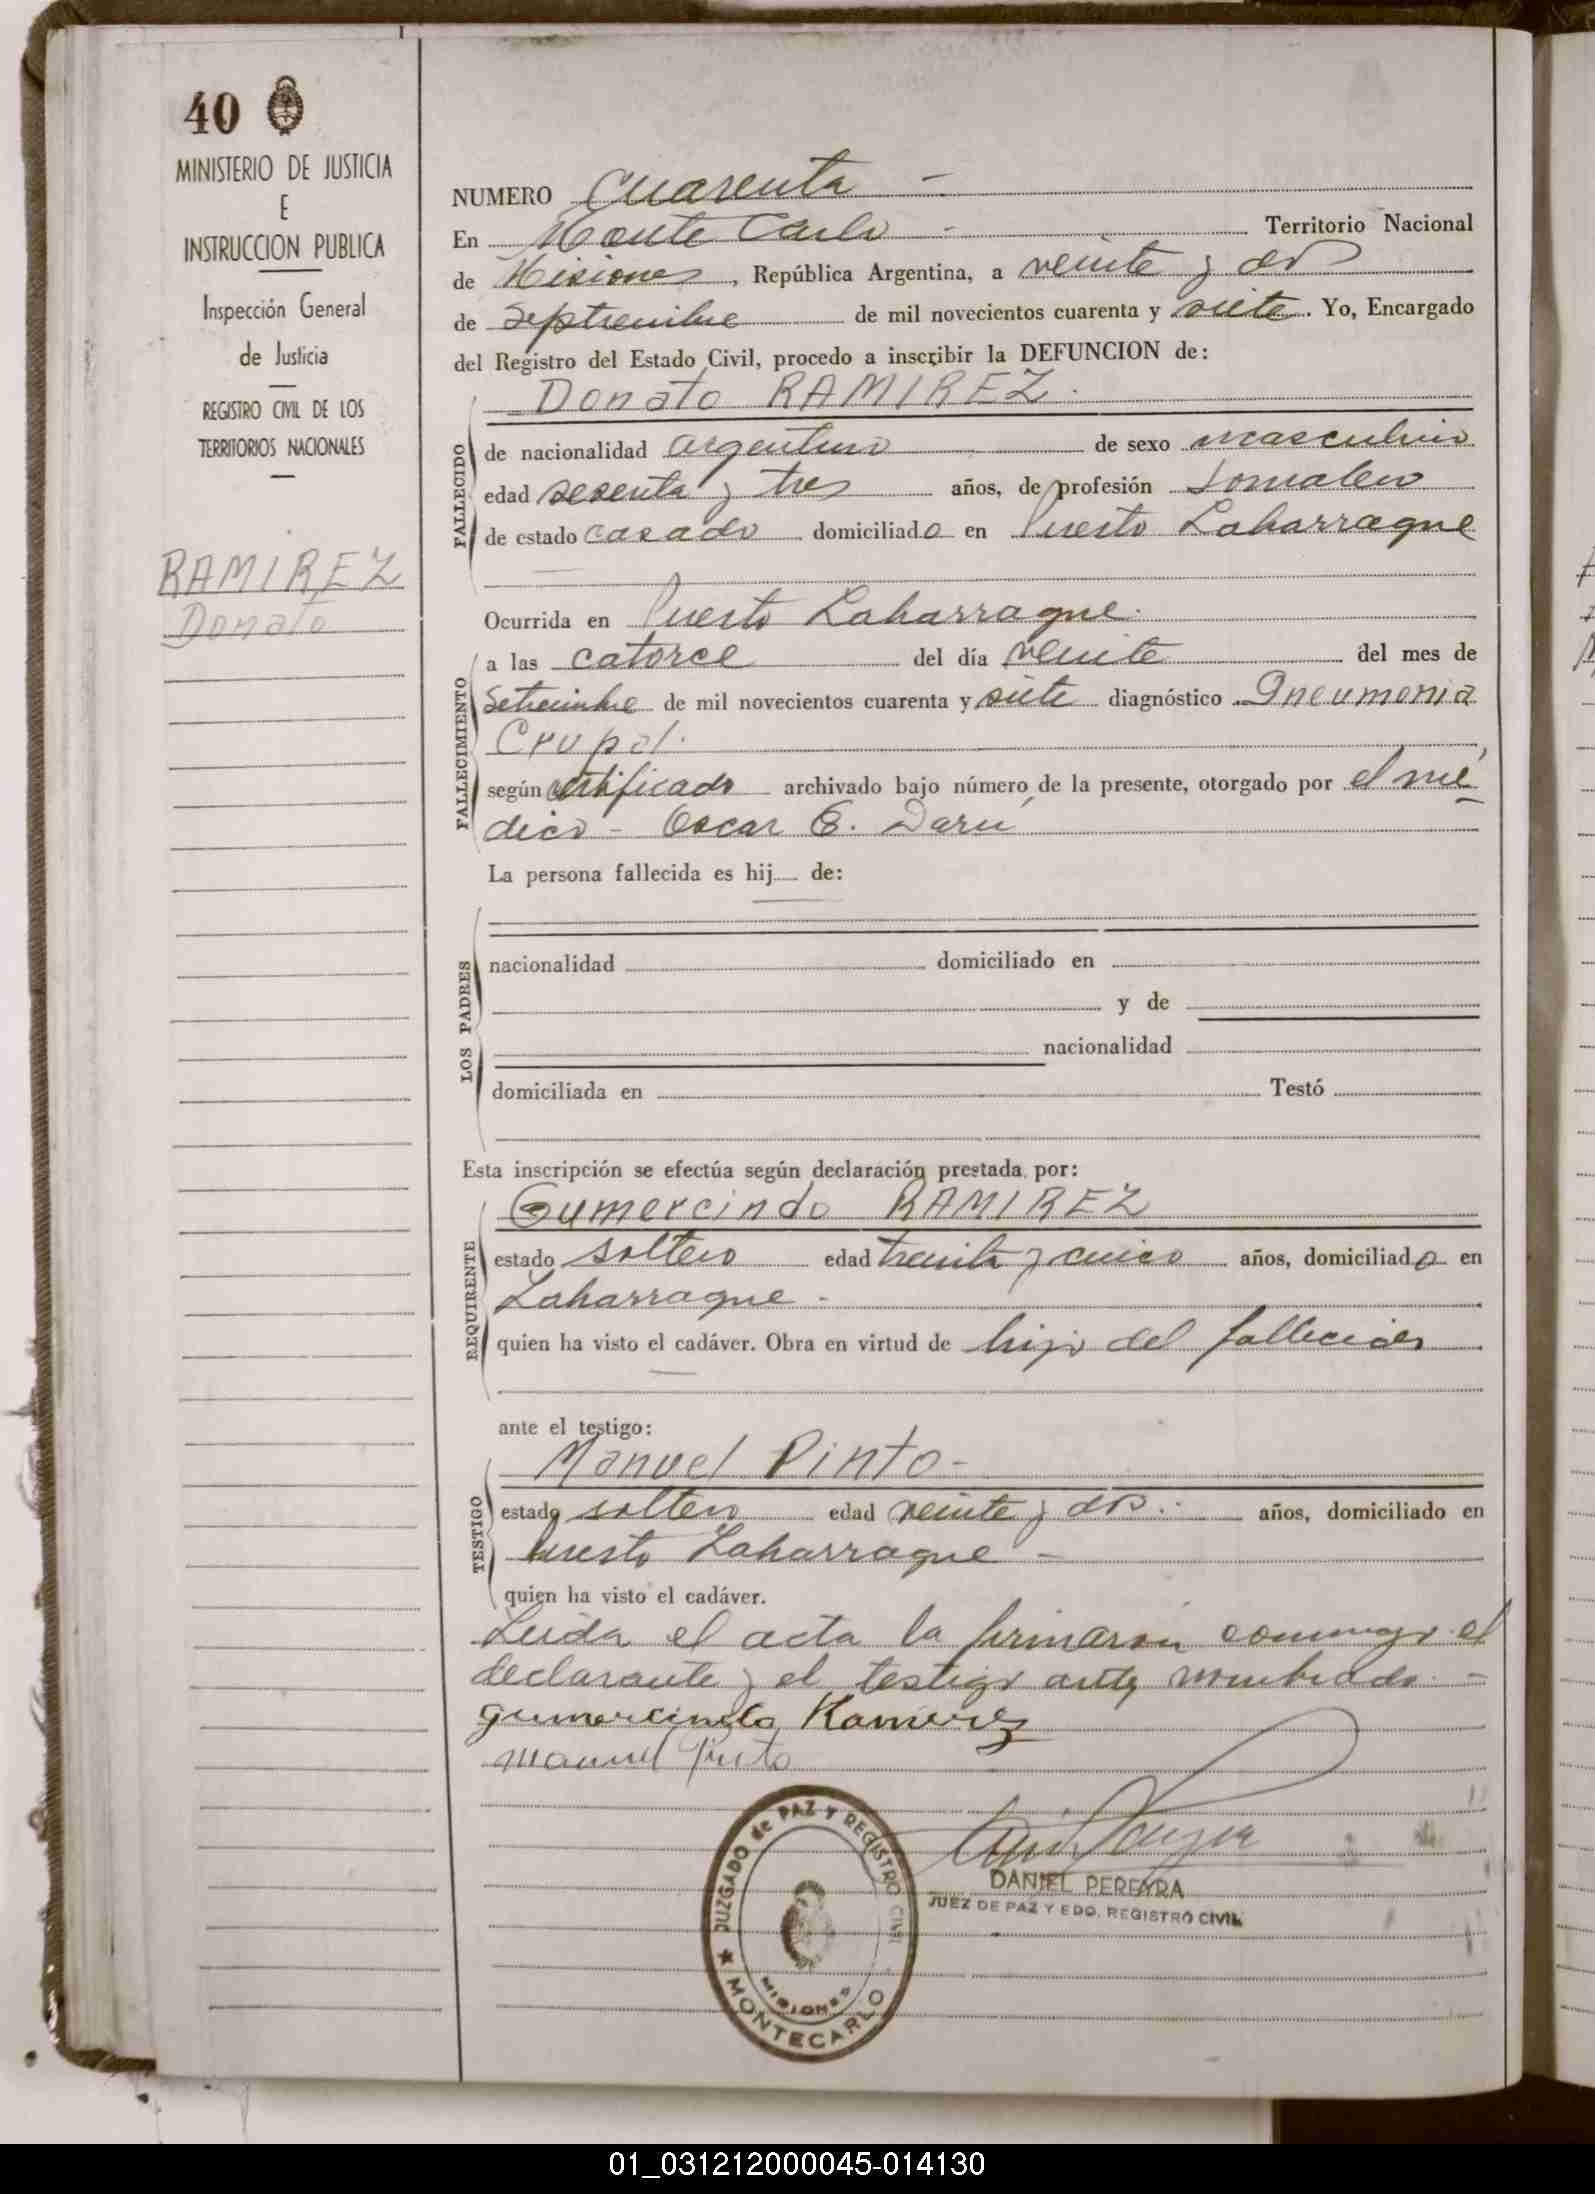 40
MINISTERIO DE JUSTICIA
E
INSTRUCCION PUBLICA
Inspección General
de Justicia
REGISTRO CIVIL DE LOS
TERRITORIOS NACIONALES
RAMIREZ
Donato
NUMERO Cuarenta -
En Monte Carlo - Territorio Nacional
de Misiones, República Argentina, a veinte y dos
de Septiembre de mil novecientos cuarenta y siete. Yo, Encargado
del Registro del Estado Civil, procedo a inscribir la DEFUNCION de:
Donato RAMIREZ.
FALLECIDO
de nacionalidad argentino de sexo masculino
edad sesenta y tres años, de profesión Jornalero
de estado casado domiciliado en Puerto Laharrague
Ocurrida en Puerto Laharrague.
FALLECIMIENTO
a las catorce del día veinte del mes de
Setiembre de mil novecientos cuarenta y siete diagnóstico Pneumonia
Crupal.
según certificado archivado bajo número de la presente, otorgado por el mé
dico - Oscar E. Darú
La persona fallecida es hij de:
LOS PADRES
nacionalidad domiciliado en
y de
nacionalidad
domiciliada en Testó
Esta inscripción se efectúa según declaración prestada por:
REQUIRENTE
Gumercindo RAMIREZ
estado soltero edad treinta y cinco años, domiciliado en
Laharrague -
quien ha visto el cadáver. Obra en virtud de hijo del fallecido
ante el testigo:
TESTIGO
Manuel Pinto -
estado soltero edad veinte y dos.- años, domiciliado en
Puerto Laharrague -
quien ha visto el cadáver.
Leida el acta la firmaron conmigo el
declarante y el testigo antes nombrado. -
gumercindo Ramirez
Manuel Pinto
JUZGADO de PAZ Y REGISTRO CIVIL
MISIONES
★ MONTECARLO
DANIEL PEREYRA
JUEZ DE PAZ Y EDO. REGISTRO CIVIL
01_031212000045-014130